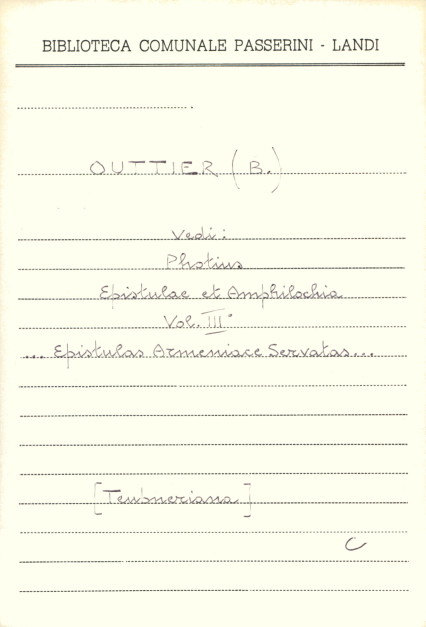 BIBLIOTECA COMUNALE PASSERINI - LANDI
OUTTIER (B.)
Vedi:
Photius
Epistulae et Amphilochia
Vol. III°
... Epistulas Armeniace Servatas...
[Teubneriana]
C